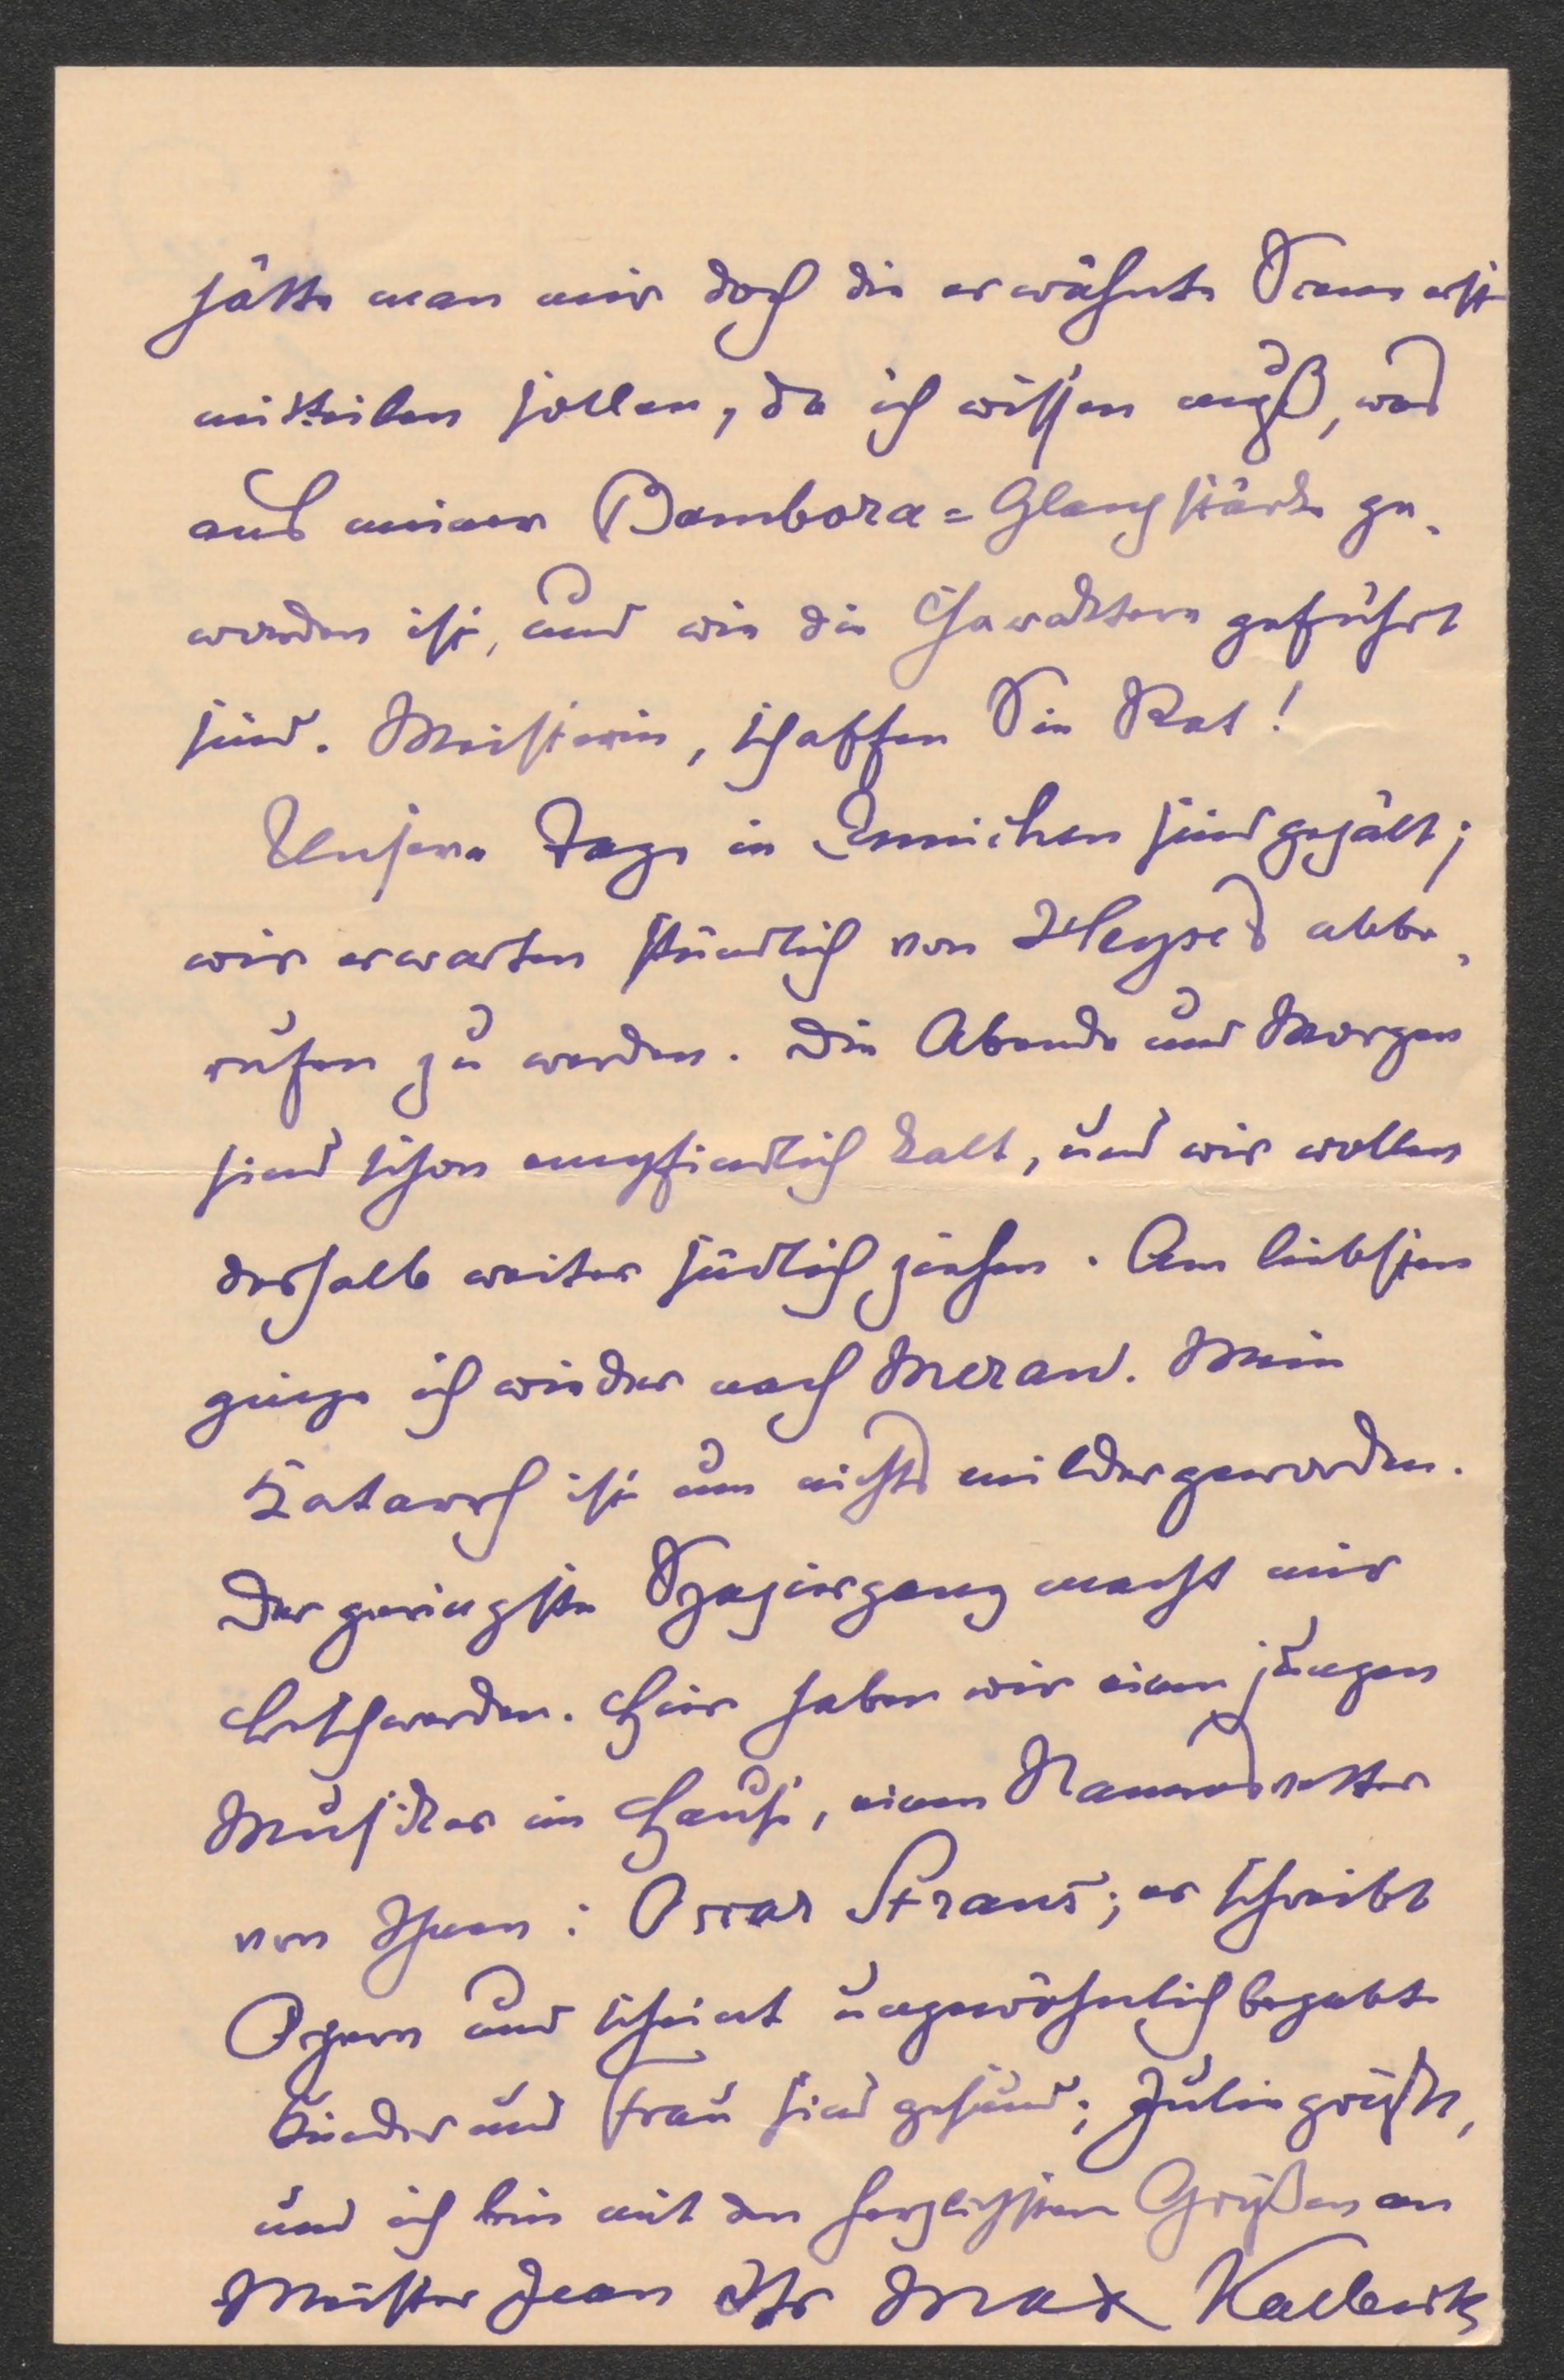 hätte man mir doch die erwähnte Scene erst
mitteilen sollen, da ich wissen muß, was
aus meiner Bambora=Glanzstärke ge-
worden ist, und wie die Charaktere geführt
sind. Meisterin, schaffen Sie Rat!
Unsere Tage in Innichen sind gezält;
wir erwarten stündlich von Heyses abbe-
rufen zu werden. Die Abende und Morgen
sind schon empfindlich kalt, und wir wollen
deshalb weiter südlich ziehen. Am liebsten
ginge ich wieder nach Meran. Mein
Katarrh ist um nichts milder geworden.
Der geringste Spaziergang macht mir
Beschwerden. Hier haben wir einen jungen
Musiker im Hause, einen Namensvetter
von Ihnen: Oscar Straus; er schreibt
Opern und scheint ungewöhnlich begabt.
Kinder und Frau sind gesund; Julie grüßt,
und ich bin mit den herzlichsten Grüßen an
Meister Jean Ihr Max Kalbeck